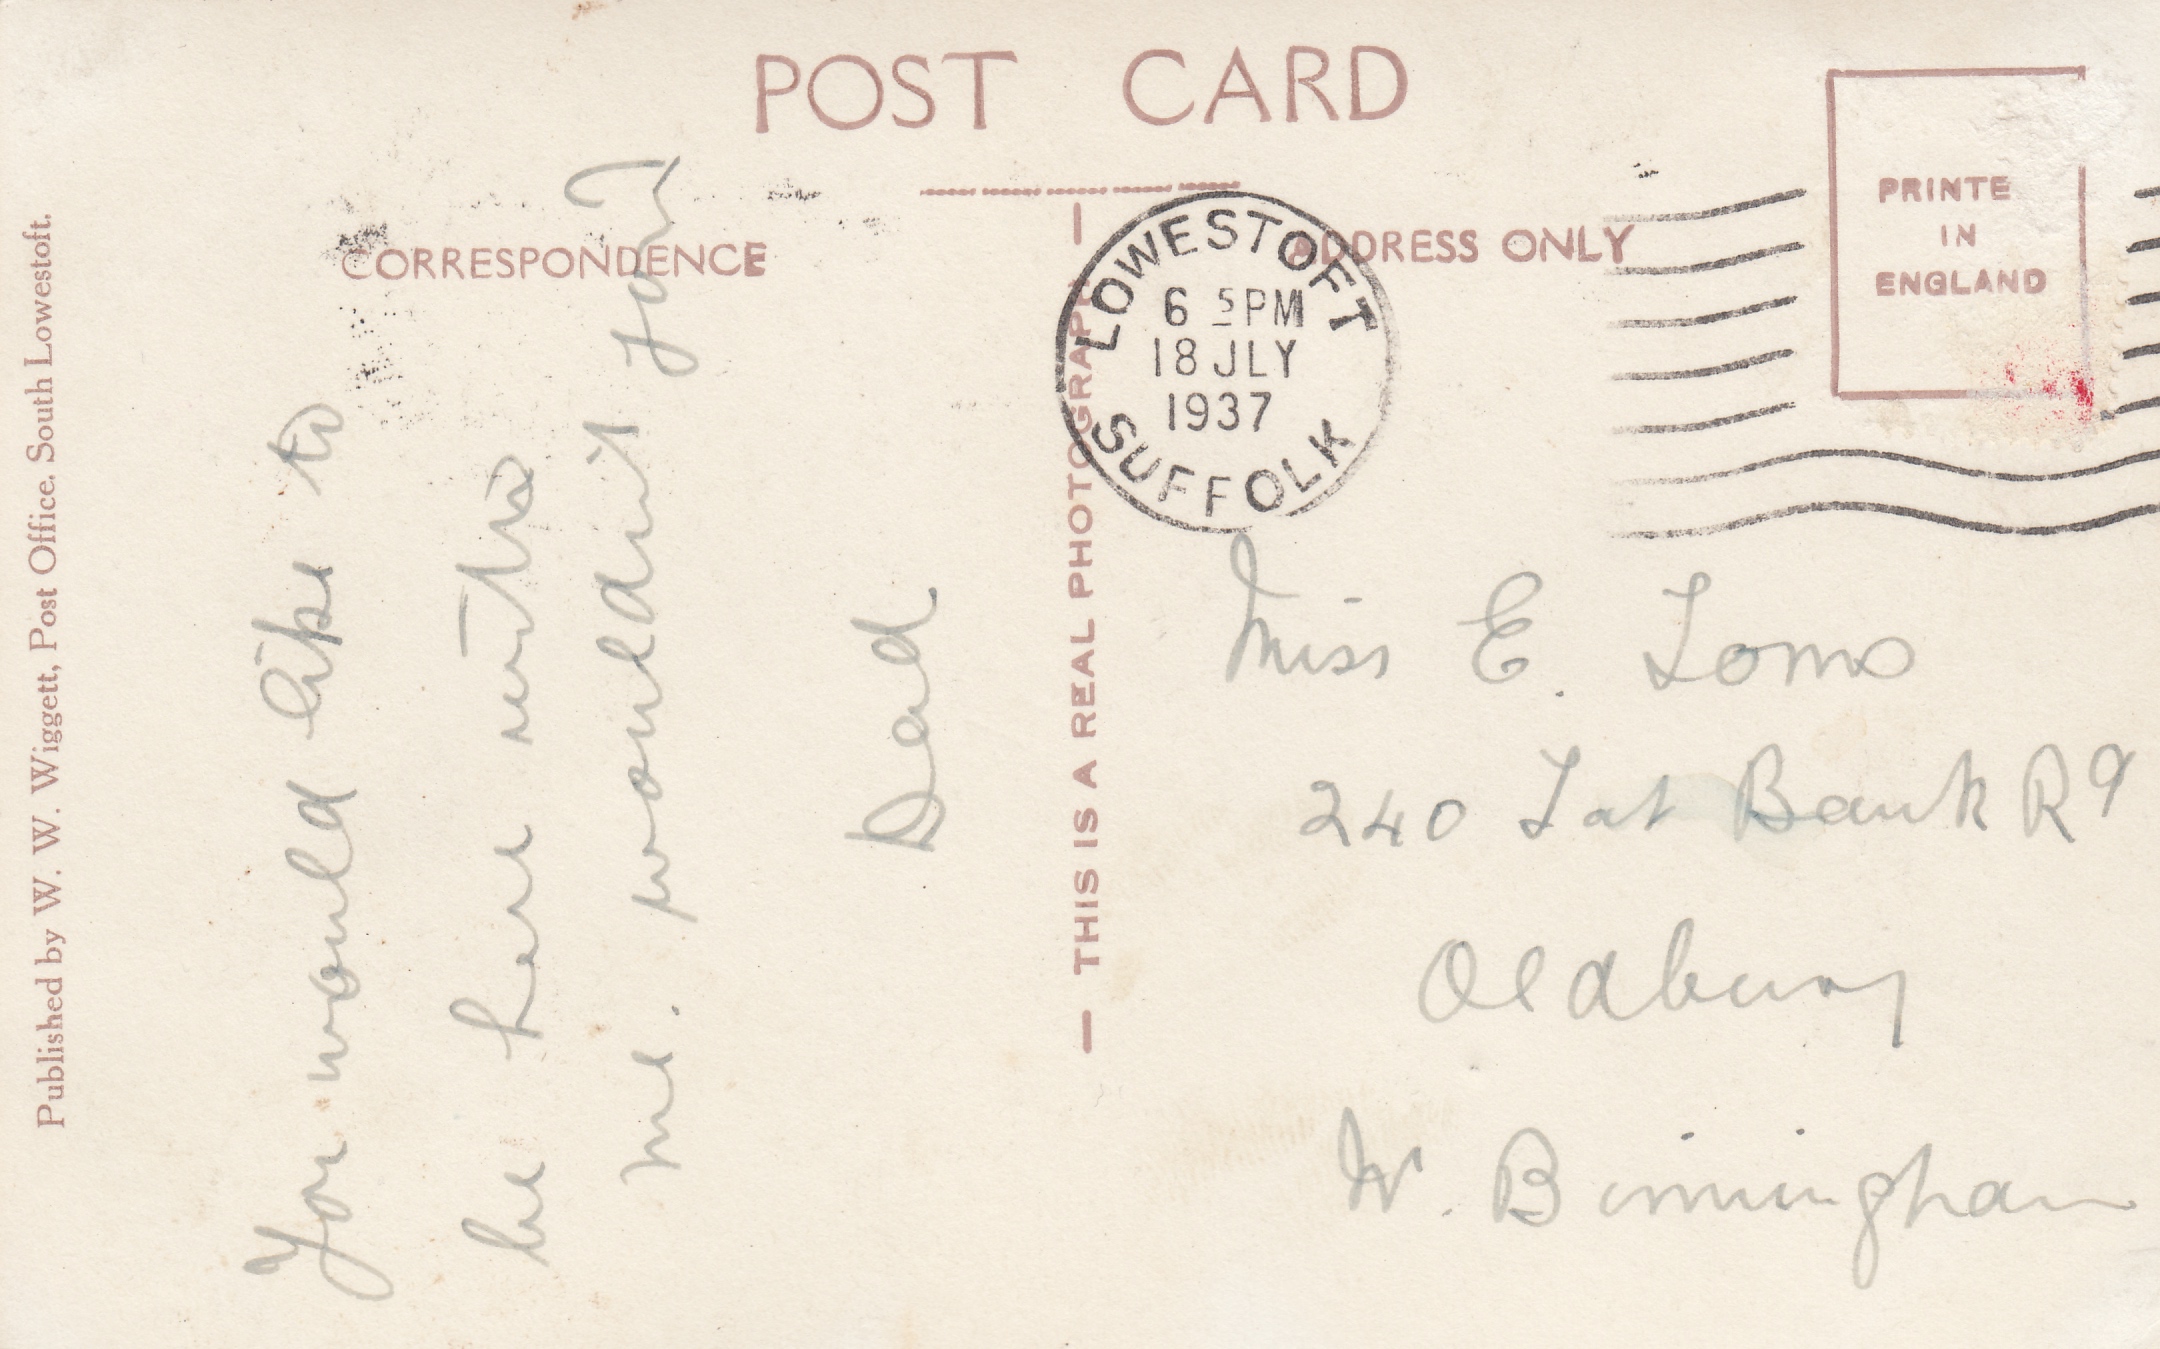 POST CARD
CORRESPONDENCE
ADDRESS ONLY
PRINTE
IN
ENGLAND
LOWESTOFT
6 5PM
18 JLY
1937
SUFFOLK
Published by W. W. Wiggett, Post Office, South Lowestoft.
You would like to
be here with
me. wouldnt you?
Dad
— THIS IS A REAL PHOTOGRAPH —
Miss E.
240 Tat Bank Rd
Oldbury
W. Birmingham